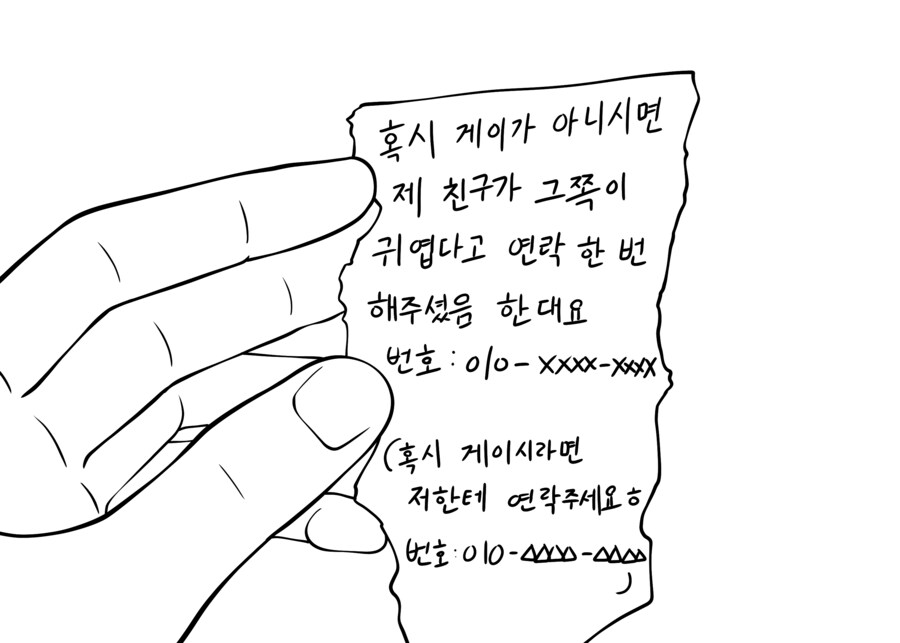 혹시 게이가 아니시면
제 친구가 그쪽이
귀엽다고 연락 한 번
해주셨음 한대요
번호 : 010-xxxx-xxxx
(혹시 게이시라면
저한테 연락주세요ㅎ
번호:010-△△△△-△△△△
)